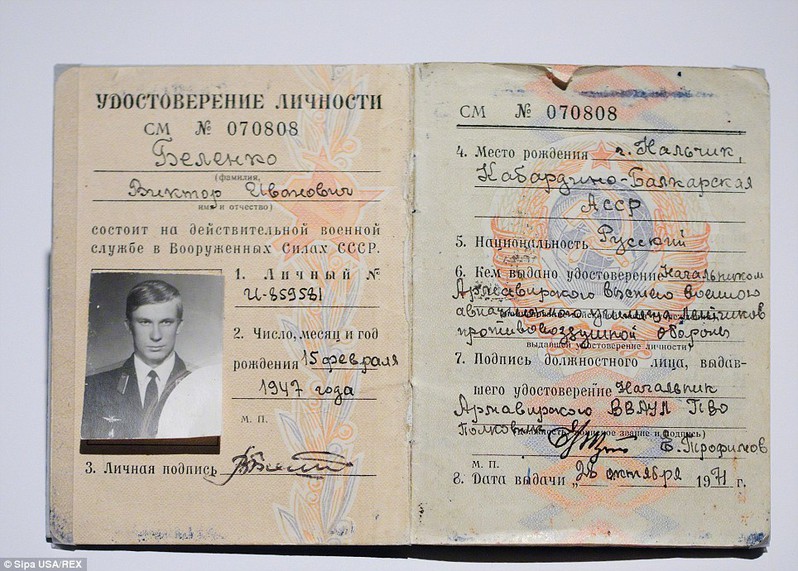 УДОСТОВЕРЕНИЕ ЛИЧНОСТИ
СМ № 070808
Беленко
(фамилия,
Виктор Иванович
имя и отчество)
состоит на действительной военной
службе в Вооруженных Силах СССР.
1. Личный №
И-859581
2. Число, месяц и год
рождения 15 февраля
1947 года
М. П.
3. Личная подпись
СМ № 070808
4. Место рождения г. Нальчик,
Кабардино-Балкарская
АССР
5. Национальность Русский
6. Кем выдано удостоверение Начальником
Армавирского высшего военного
авиационного училища лётчиков
противовоздушной обороны
выдавшей удостоверение личности)
7. Подпись должностного лица, выдав-
шего удостоверение Начальник
Армавирского ВВАУЛ ПВО
Полковник
звание и подпись)
Е. Трофимов
М. П.
8. Дата выдачи „26 октября 1971 г.
© Sipa USA/REX